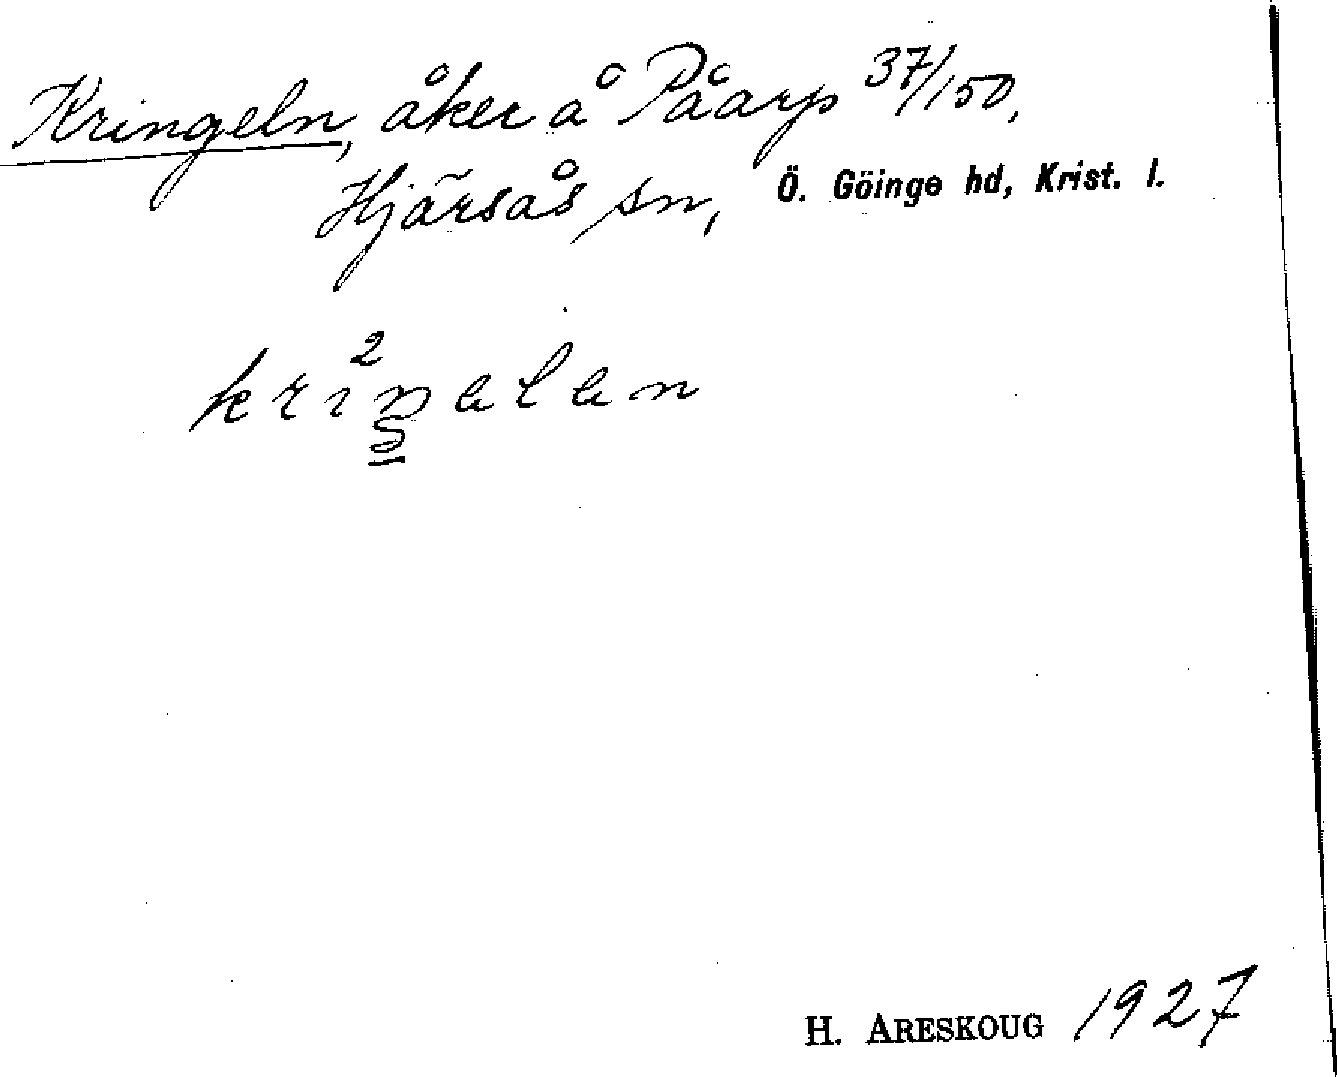 Kringeln, åker å Påarp 37/150,
Hjärsås sn, Ö. Göinge hd, Krist. l.
H. ARESKOUG 1927